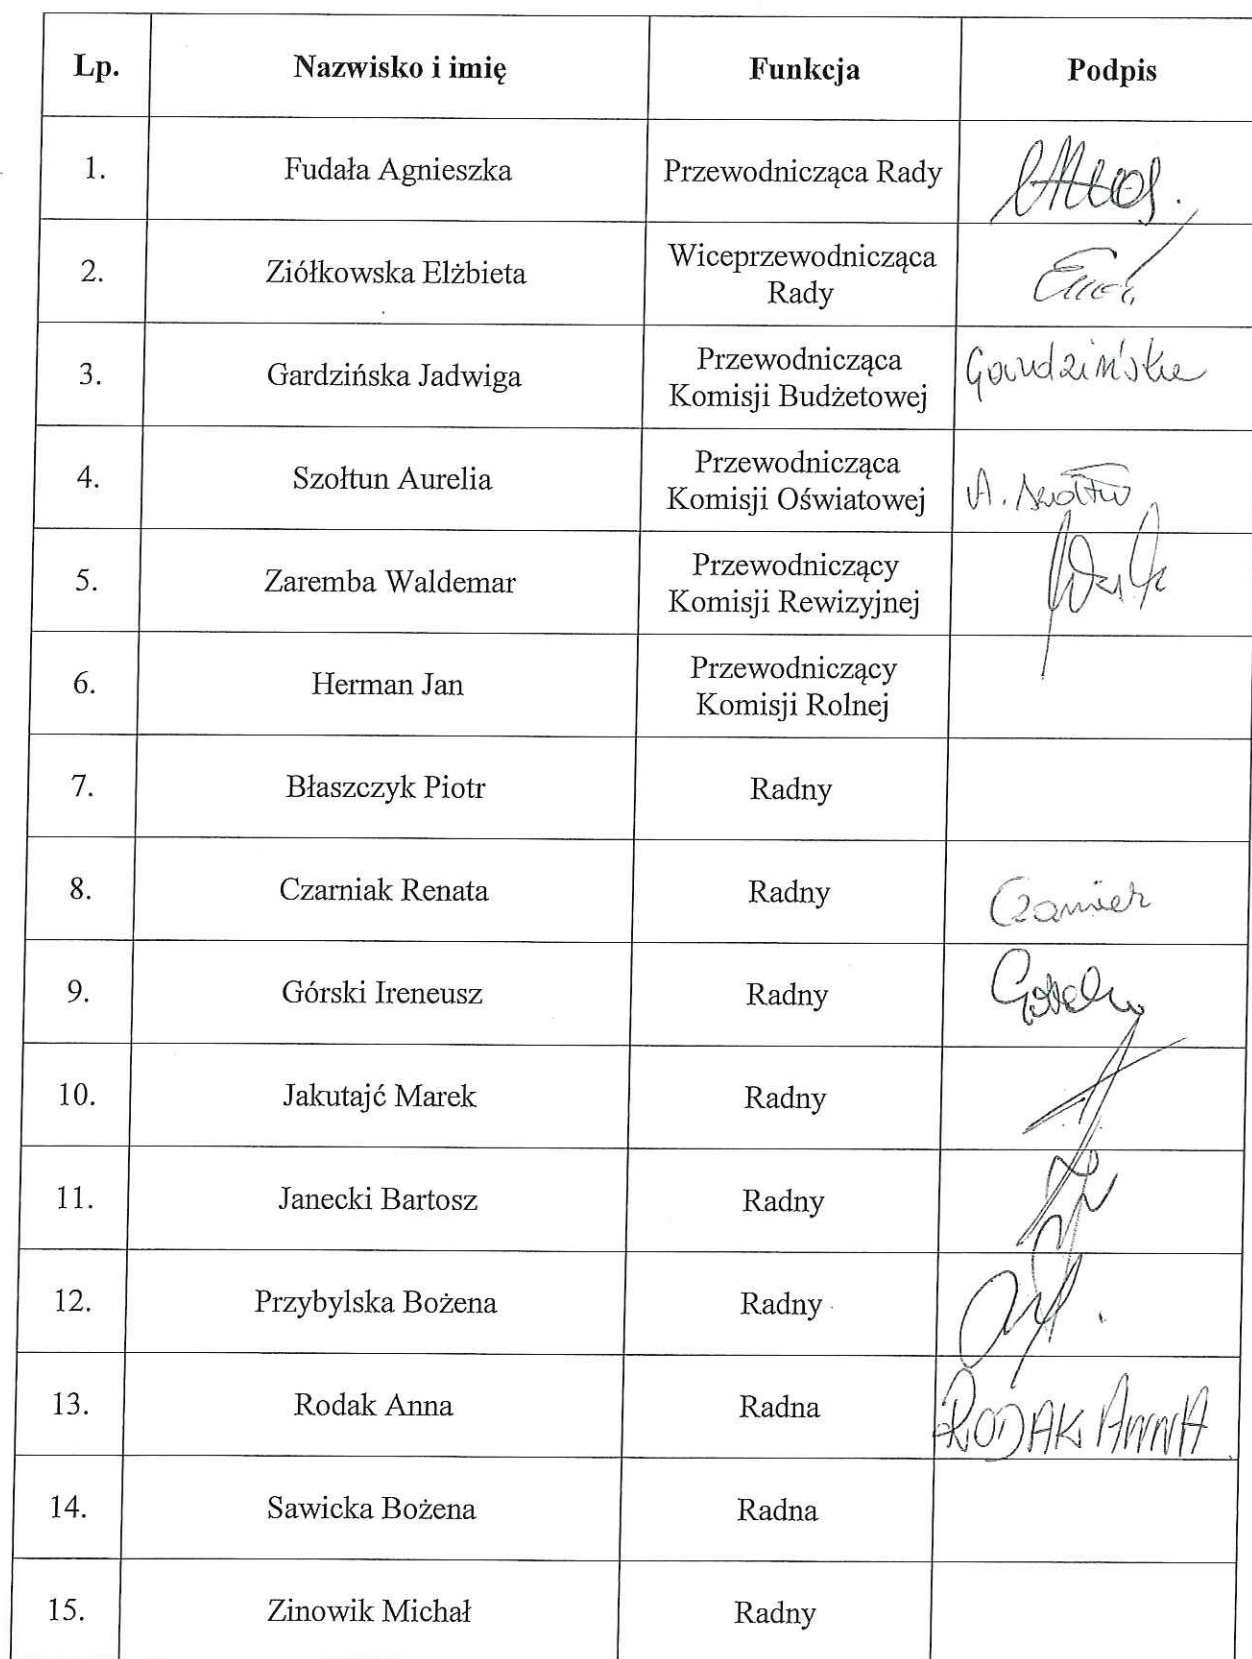 Lp. Nazwisko i imię Funkcja Podpis
1. Fudała Agnieszka Przewodnicząca Rady
2. Ziółkowska Elżbieta Wiceprzewodnicząca
Rady
3. Gardzińska Jadwiga Przewodnicząca
Komisji Budżetowej Gardzińska
4. Szołtun Aurelia Przewodnicząca
Komisji Oświatowej A.
5. Zaremba Waldemar Przewodniczący
Komisji Rewizyjnej
6. Herman Jan Przewodniczący
Komisji Rolnej
7. Błaszczyk Piotr Radny
8. Czarniak Renata Radny Czarniak
9. Górski Ireneusz Radny
10. Jakutajć Marek Radny
11. Janecki Bartosz Radny
12. Przybylska Bożena Radny
13. Rodak Anna Radna RODAK ANNA
14. Sawicka Bożena Radna
15. Zinowik Michał Radny